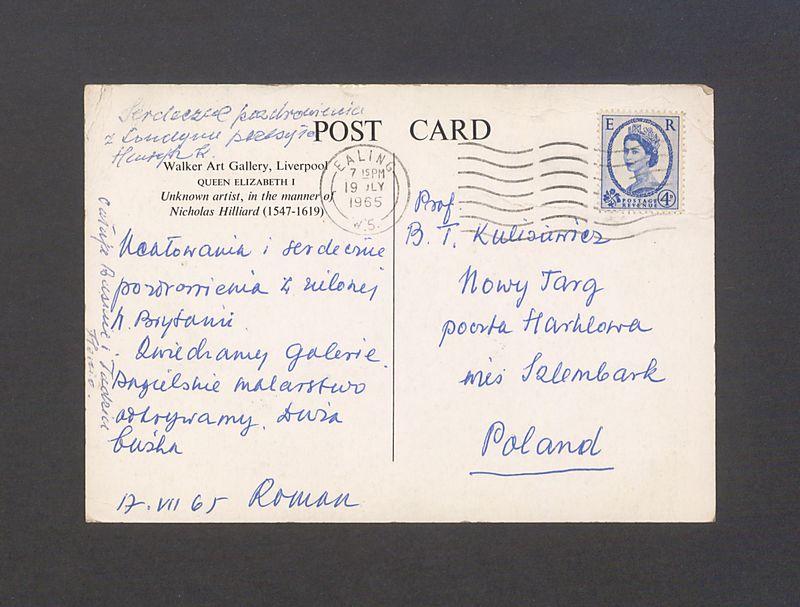 Serdeczne pozdrowienia
z Londynu przesyła
Henryk R.
POST CARD
Walker Art Gallery, Liverpool
QUEEN ELIZABETH I
Unknown artist, in the manner of
Nicholas Hilliard (1547-1619)
EALING
7 15 PM
19 JLY
1965
W.5.
E R
POSTAGE
REVENUE
4D
Ucałowania i serdeczne
pozdrowienia z zielonej
W. Brytanii.
Zwiedzamy galerie.
Angielskie malarstwo
odkrywamy. Duża
buźka
17. VII 65 Roman
całuję i
Henio.
Prof
B. T. Kulisiewicz
Nowy Targ
poczta Harklowa
wieś Szlembark
Poland